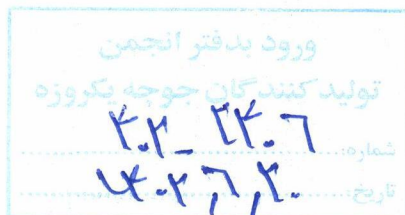 ورود بدفتر انجمن
تولید کنندگان جوجه یکروزه
شماره: ۴۰۲ _ ۲۴۰۶
تاریخ: ۱۴۰۲,۶,۲۰